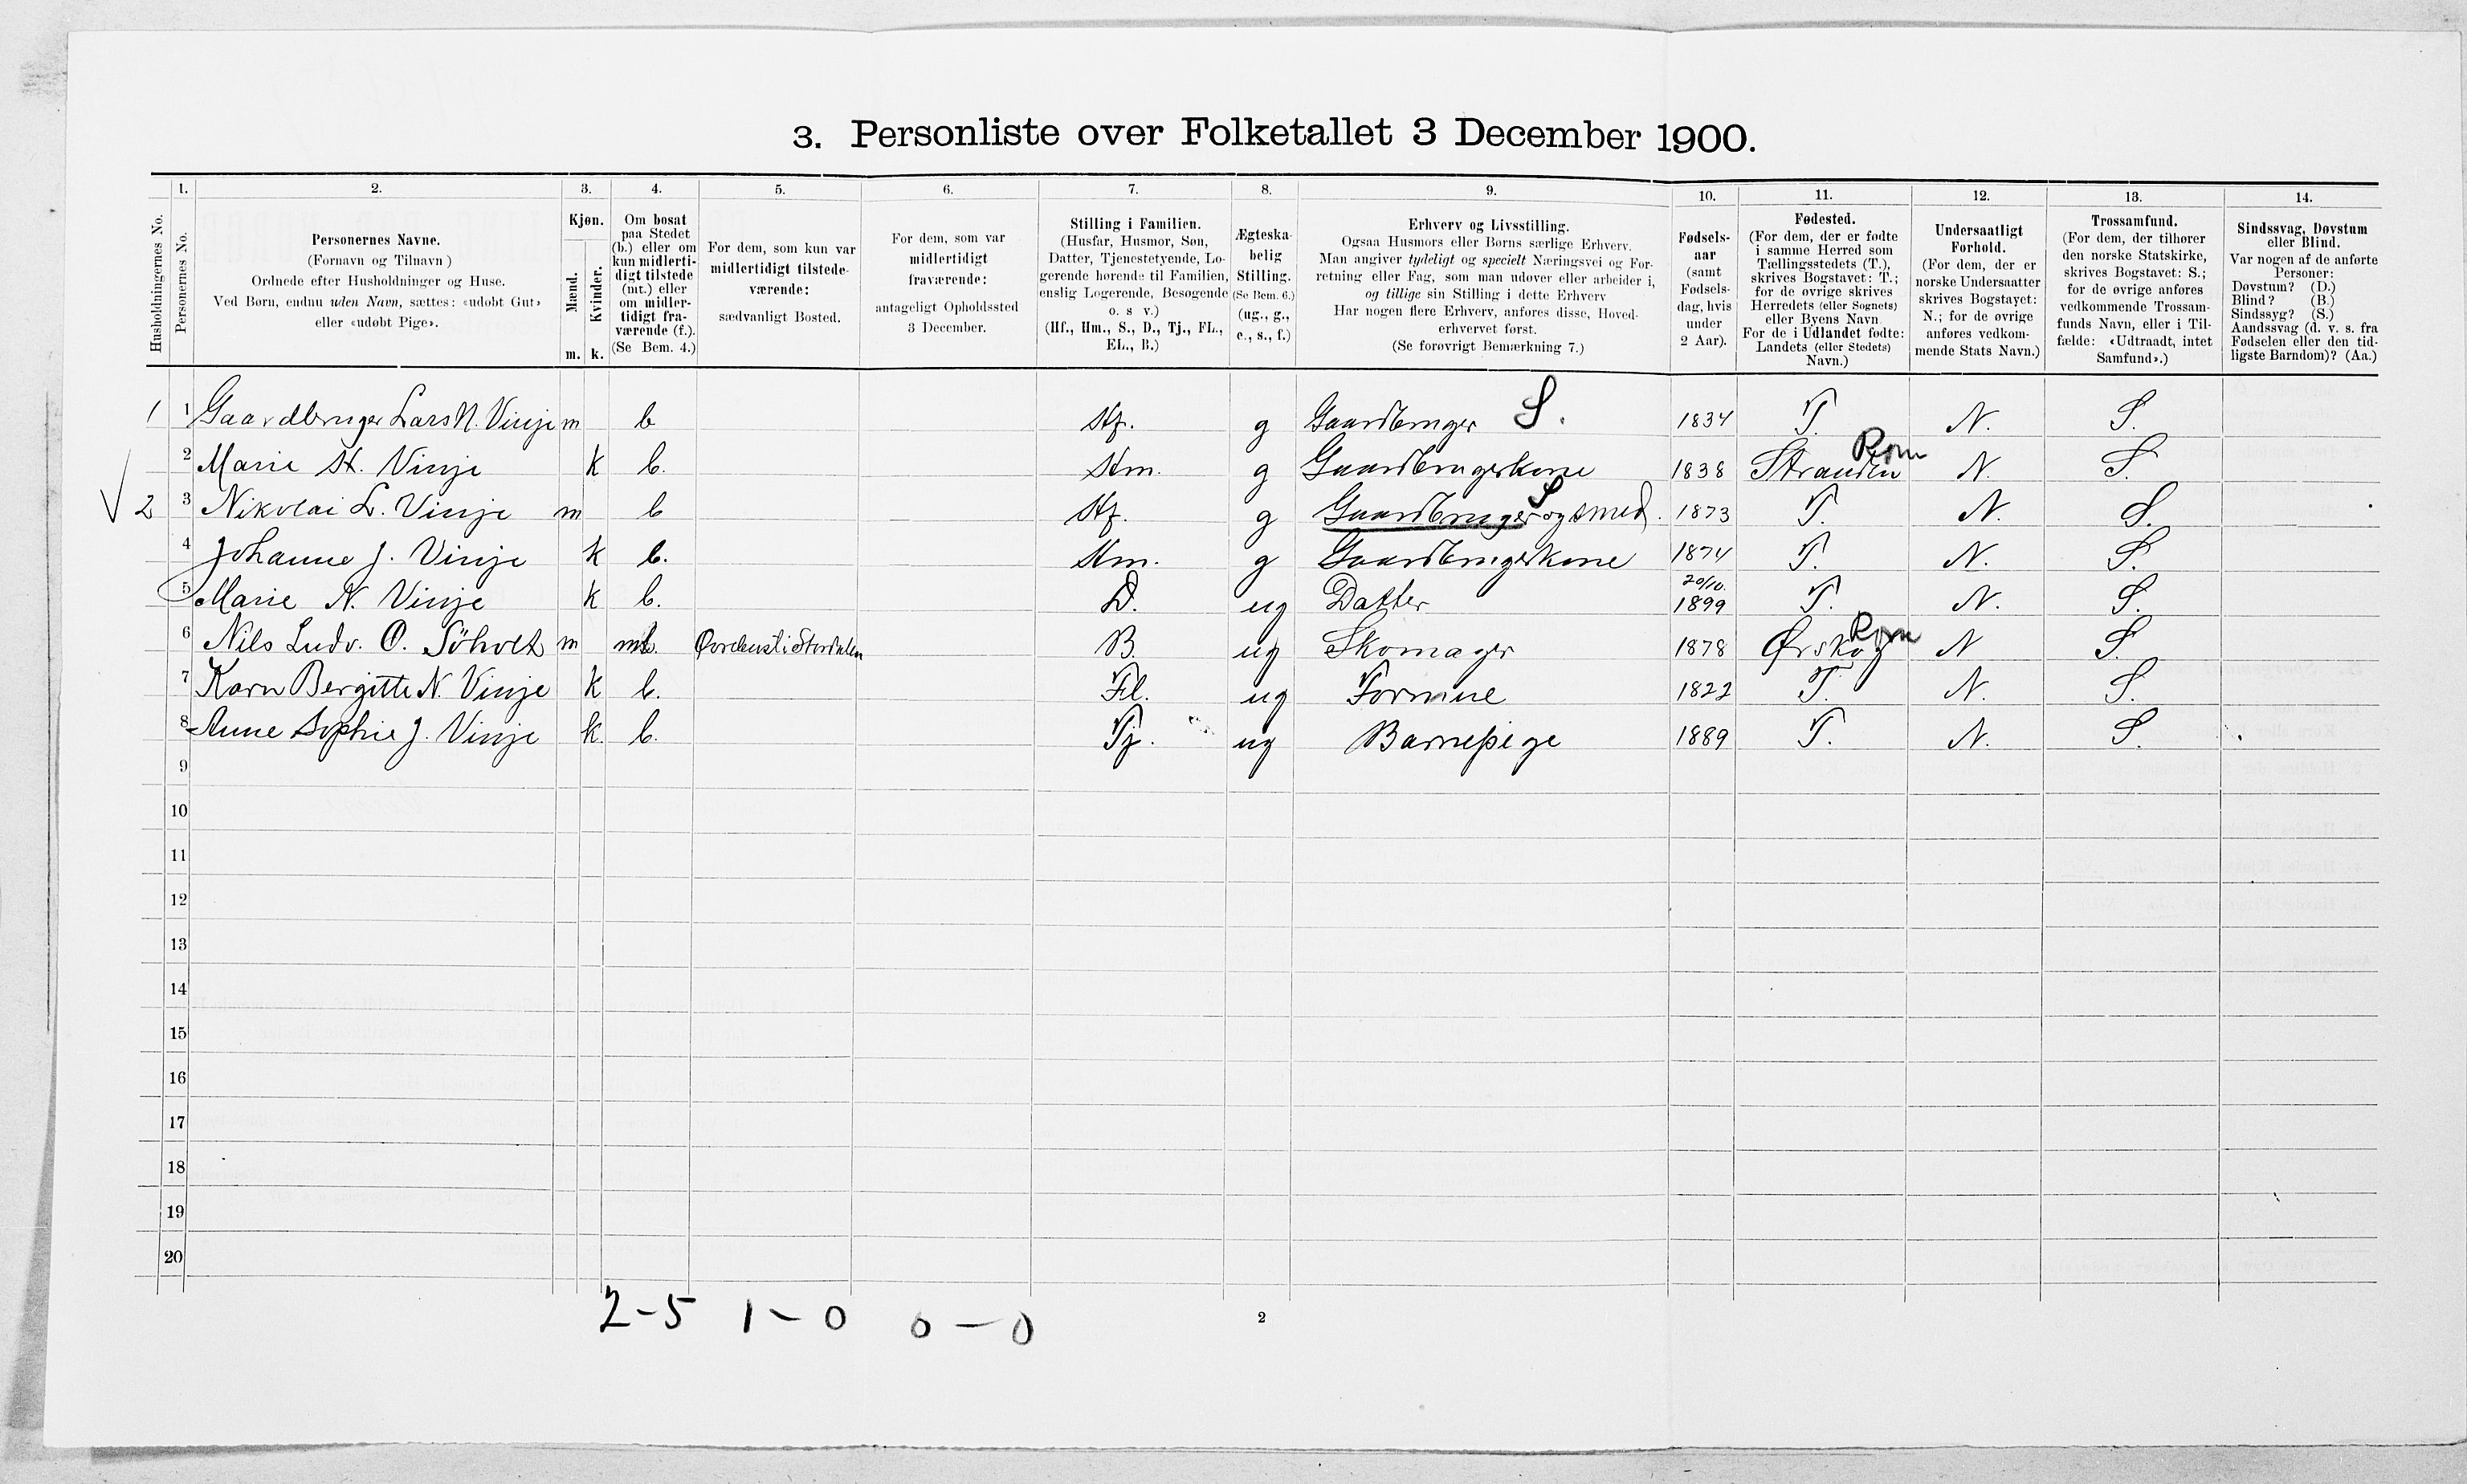 3. Personliste over Folketallet 3 December 1900.
1. 2. 3. 4. 5. 6. 7. 8. 9. 10. 11. 12. 13. 14.
Husholdningernes No.
Personernes No.
Personernes Navne.
(Fornavn og Tilnavn)
Ordnede efter Husholdninger og Huse.
Ved Børn, endnu uden Navn, sættes: «udøbt Gut»
eller «udøbt Pige».
Kjøn.
Mænd.
Kvinder.
m. k.
Om bosat
paa Stedet
(b.) eller om
kun midlerti-
digt tilstede
(mt.) eller
om midler-
tidigt fra-
værende (f.).
(Se Bem. 4.)
For dem, som kun var
midlertidigt tilstede-
værende:
sædvanligt Bosted.
For dem, som var
midlertidigt
fraværende:
antageligt Opholdssted
3 December.
Stilling i Familien.
(Husfar, Husmor, Søn,
Datter, Tjenestetyende, Lo-
gerende hørende til Familien,
enslig Logerende, Besøgende
o. s v.)
(Hf., Hm., S., D., Tj., FL.,
EL., B.)
Ægteska-
belig
Stilling.
(Se Bem. 6.)
(ug., g.,
e., s., f.)
Erhverv og Livsstilling.
Ogsaa Husmors eller Børns særlige Erhverv.
Man angiver tydeligt og specielt Næringsvei og For-
retning eller Fag, som man udøver eller arbeider i,
og tillige sin Stilling i dette Erhverv
Har nogen flere Erhverv, anføres disse, Hoved-
erhvervet først.
(Se forøvrigt Bemærkning 7.)
Fødsels-
aar
(samt
Fødsels-
dag, hvis
under
2 Aar).
Fødested.
(For dem, der er fødte
i samme Herred som
Tællingsstedets (T.),
skrives Bogstavet: T.;
for de øvrige skrives
Herredets (eller Sognets)
eller Byens Navn
For de i Udlandet fødte:
Landets (eller Stedets)
Navn.)
Undersaatligt
Forhold.
(For dem, der er
norske Undersaatter
skrives Bogstavet:
N.; for de øvrige
anføres vedkom-
mende Stats Navn.)
Trossamfund.
(For dem, der tilhører
den norske Statskirke,
skrives Bogstavet: S.;
for de øvrige anføres
vedkommende Trossam-
funds Navn, eller i Til-
fælde: «Udtraadt, intet
Samfund».)
Sindssvag, Døvstum
eller Blind.
Var nogen af de anførte
Personer:
Døvstum? (D.)
Blind? (B.)
Sindssyg? (S.)
Aandssvag (d. v. s. fra
Fødselen eller den tid-
ligste Barndom)? (Aa.)
1 1 Gaardbruger Lars N. Vinje m b Hf. g Gaardbruger S. 1834 T. N. S.
2 Marie H. Vinje k b. Hm. g Gaardbrugerkone 1838 Stranden Rom N. S.
2 3 Nikolai L. Vinje m b Hf. g Gaardbruger S og smed. 1873 T. N. S.
4 Johanne J. Vinje k b. Hm. g Gaardbrugerkone 1874 T. N. S.
5 Marie N. Vinje k b. D. ug Datter 20/10. 1899 T. N. S.
6 Nils Ludv. O. Søholt m mt. i Stordalen B. ug Skomager 1878 Ørskog Rom N S.
7 Karn Bergitte N. Vinje k b. Fl. ug Formue 1822 T. N. S.
8 Anne Sophie J. Vinje k. b. Tj. ug Barnepige 1889 T. N. S.
9
10
11
12
13
14
15
16
17
18
19
20
2-5 1-0 0-0
2